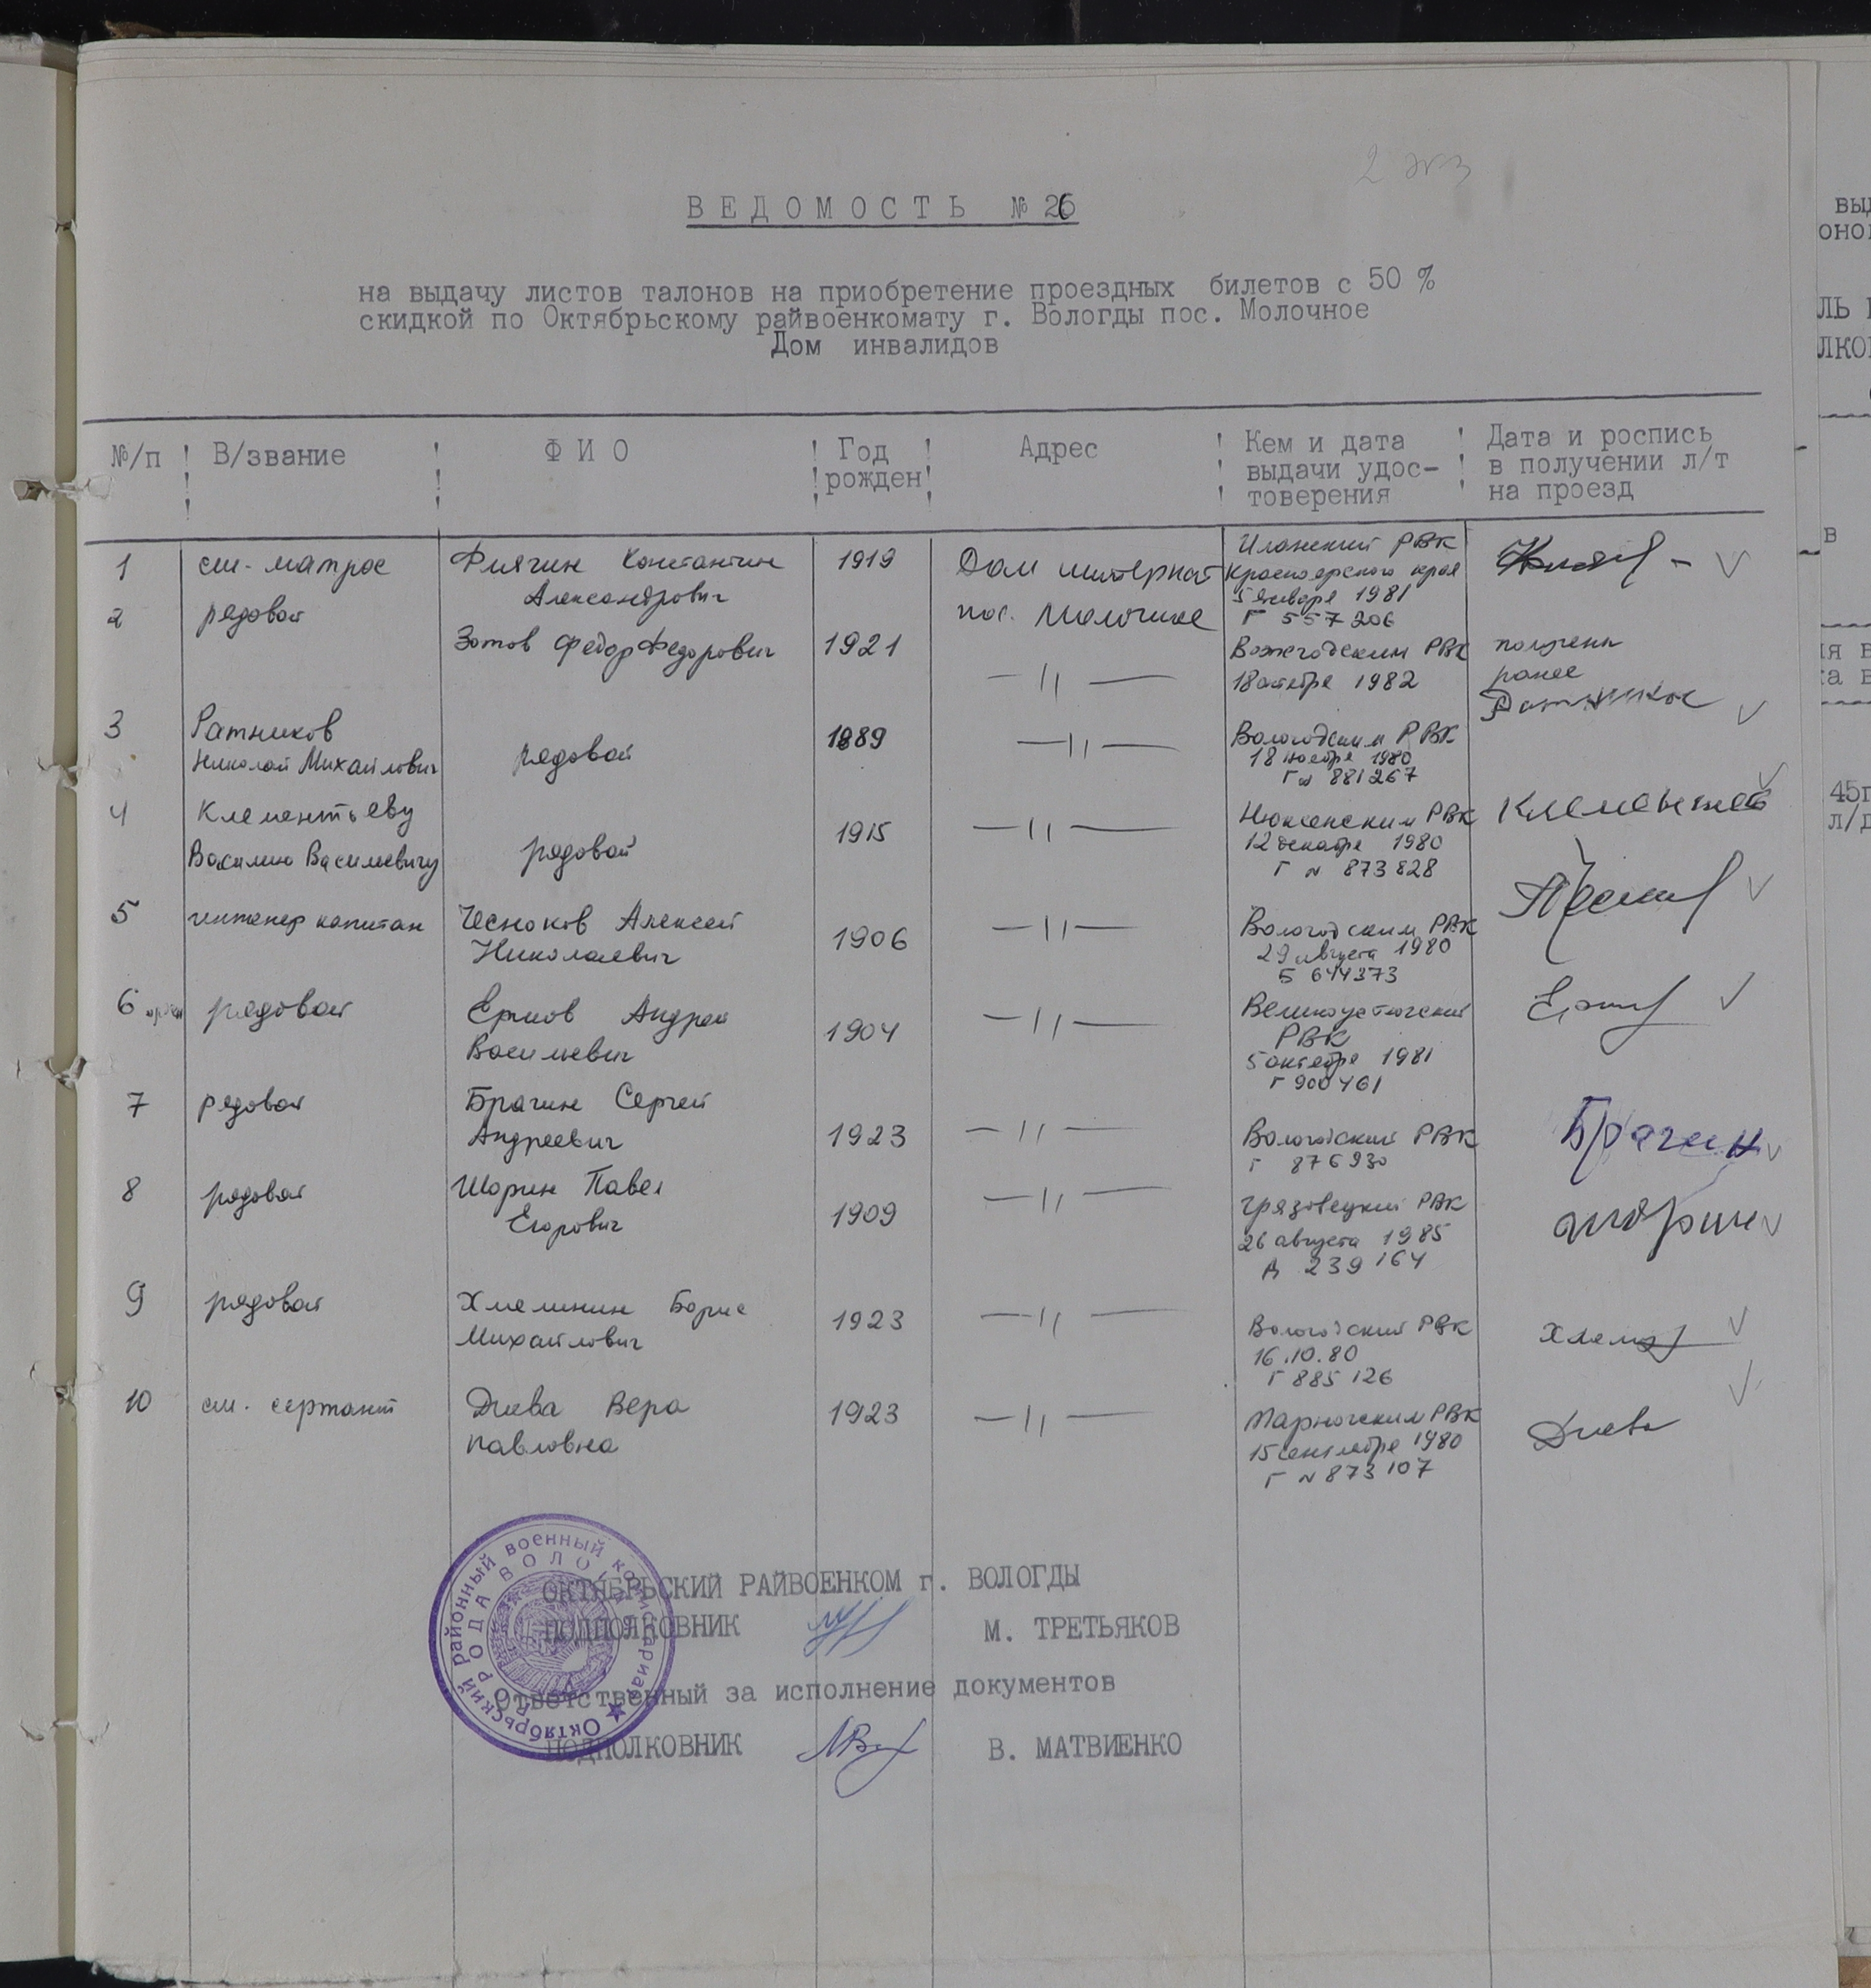 2 экз
ВЕДОМОСТЬ № 26
на выдачу листов талонов на приобретение проездных билетов с 50 %
скидкой по Октябрьскому райвоенкомату г. Вологды пос. Молочное
Дом инвалидов
№/п ! В/звание ! Ф И О ! Год рожден ! Адрес ! Кем и дата выдачи удос-товерения ! Дата и роспись в получении л/т на проезд
1 ст. матрос Константин 1919 Дом интернат Иланский РВК
Александрович пос. Молочное Красноярского края
5 января 1981
Г 557206
2 рядовой Зотов Федор Федорович 1921 —||— Вожегодским РВК получены
18 октября 1982 ранее
3 Ратников рядовой 1889 —||— Вологодским РВК
Николай Михайлович 18 ноября 1980
Г № 881267
4 Клементьеву рядовой 1915 —||— Нюксенским РВК
Василию Васильевичу 12 декабря 1980
Г № 873828
5 инженер капитан Чесноков Алексей 1906 —||— Вологодским РВК
Николаевич 29 августа 1980
Б 644373
6 рядовой Ермов Андрей 1904 —||— Великоустюгский
Васильевич РВК
5 октября 1981
Г 900461
7 рядовой Брагин Сергей 1923 —||— Вологодский РВК Брагин
Андреевич Г 876930
8 рядовой Шорин Павел 1909 —||— Грязовецкий РВК Шорин
Егорович 26 августа 1985
Д 239164
9 рядовой Борис 1923 —||— Вологодский РВК
Михайлович 16.10.80
Г 885126
10 ст. сержант Вера 1923 —||— Тарногским РВК
Павловна 15 сентября 1980
Г № 873107
ОКТЯБРЬСКИЙ РАЙВОЕНКОМ г. ВОЛОГДЫ
ПОДПОЛКОВНИК М. ТРЕТЬЯКОВ
Ответственный за исполнение документов
ПОДПОЛКОВНИК В. МАТВИЕНКО
Октябрьский районный военный комиссариат
ГОРОДА ВОЛОГДЫ